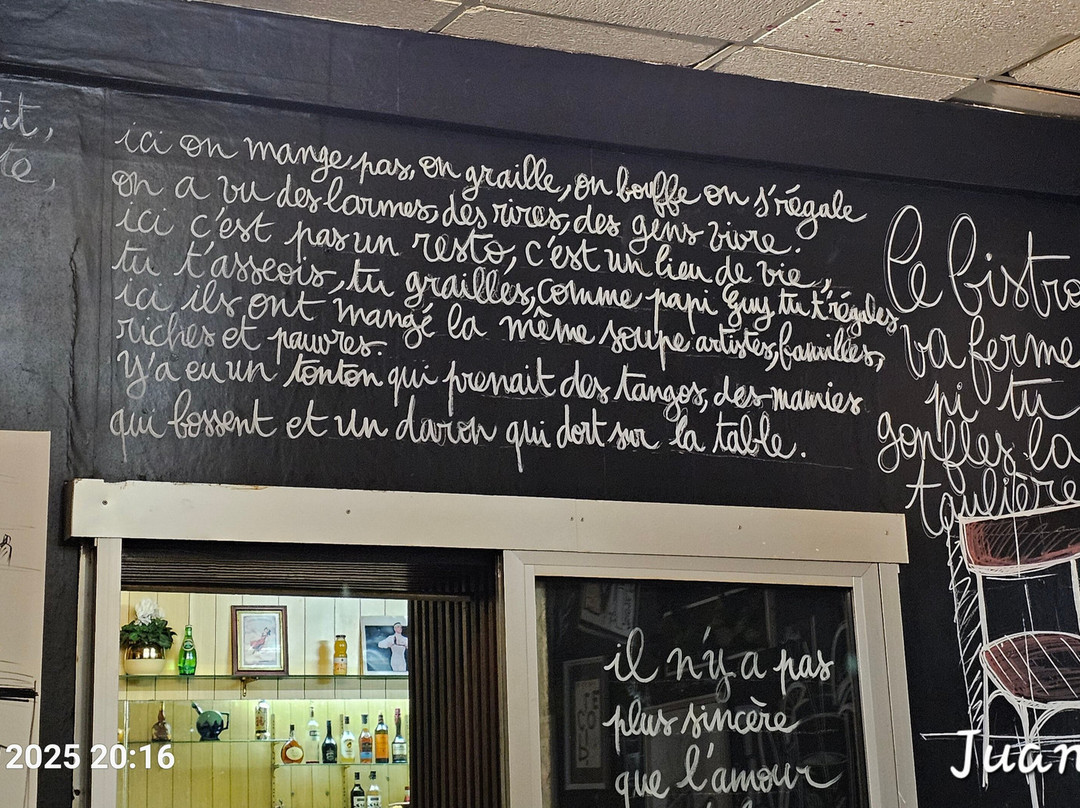 ici on mange pas, on graille, on bouffe on s'régale
on a vu des larmes, des rires, des gens vivre.
ici c'est pas un resto, c'est un lieu de vie,
tu t'asseois, tu grailles, comme papi Guy tu t'régales,
ici ils ont mangé la même soupe artistes, familles,
riches et pauvres.
Y'a eu un tonton qui prenait des tangos, des mamies
qui bossent et un daron qui dort sur la table.
le bistro
va ferme
pi tu
gonfles la
taulière
il n'y a pas
plus sincère
que l'amour
2025 20:16
Juan